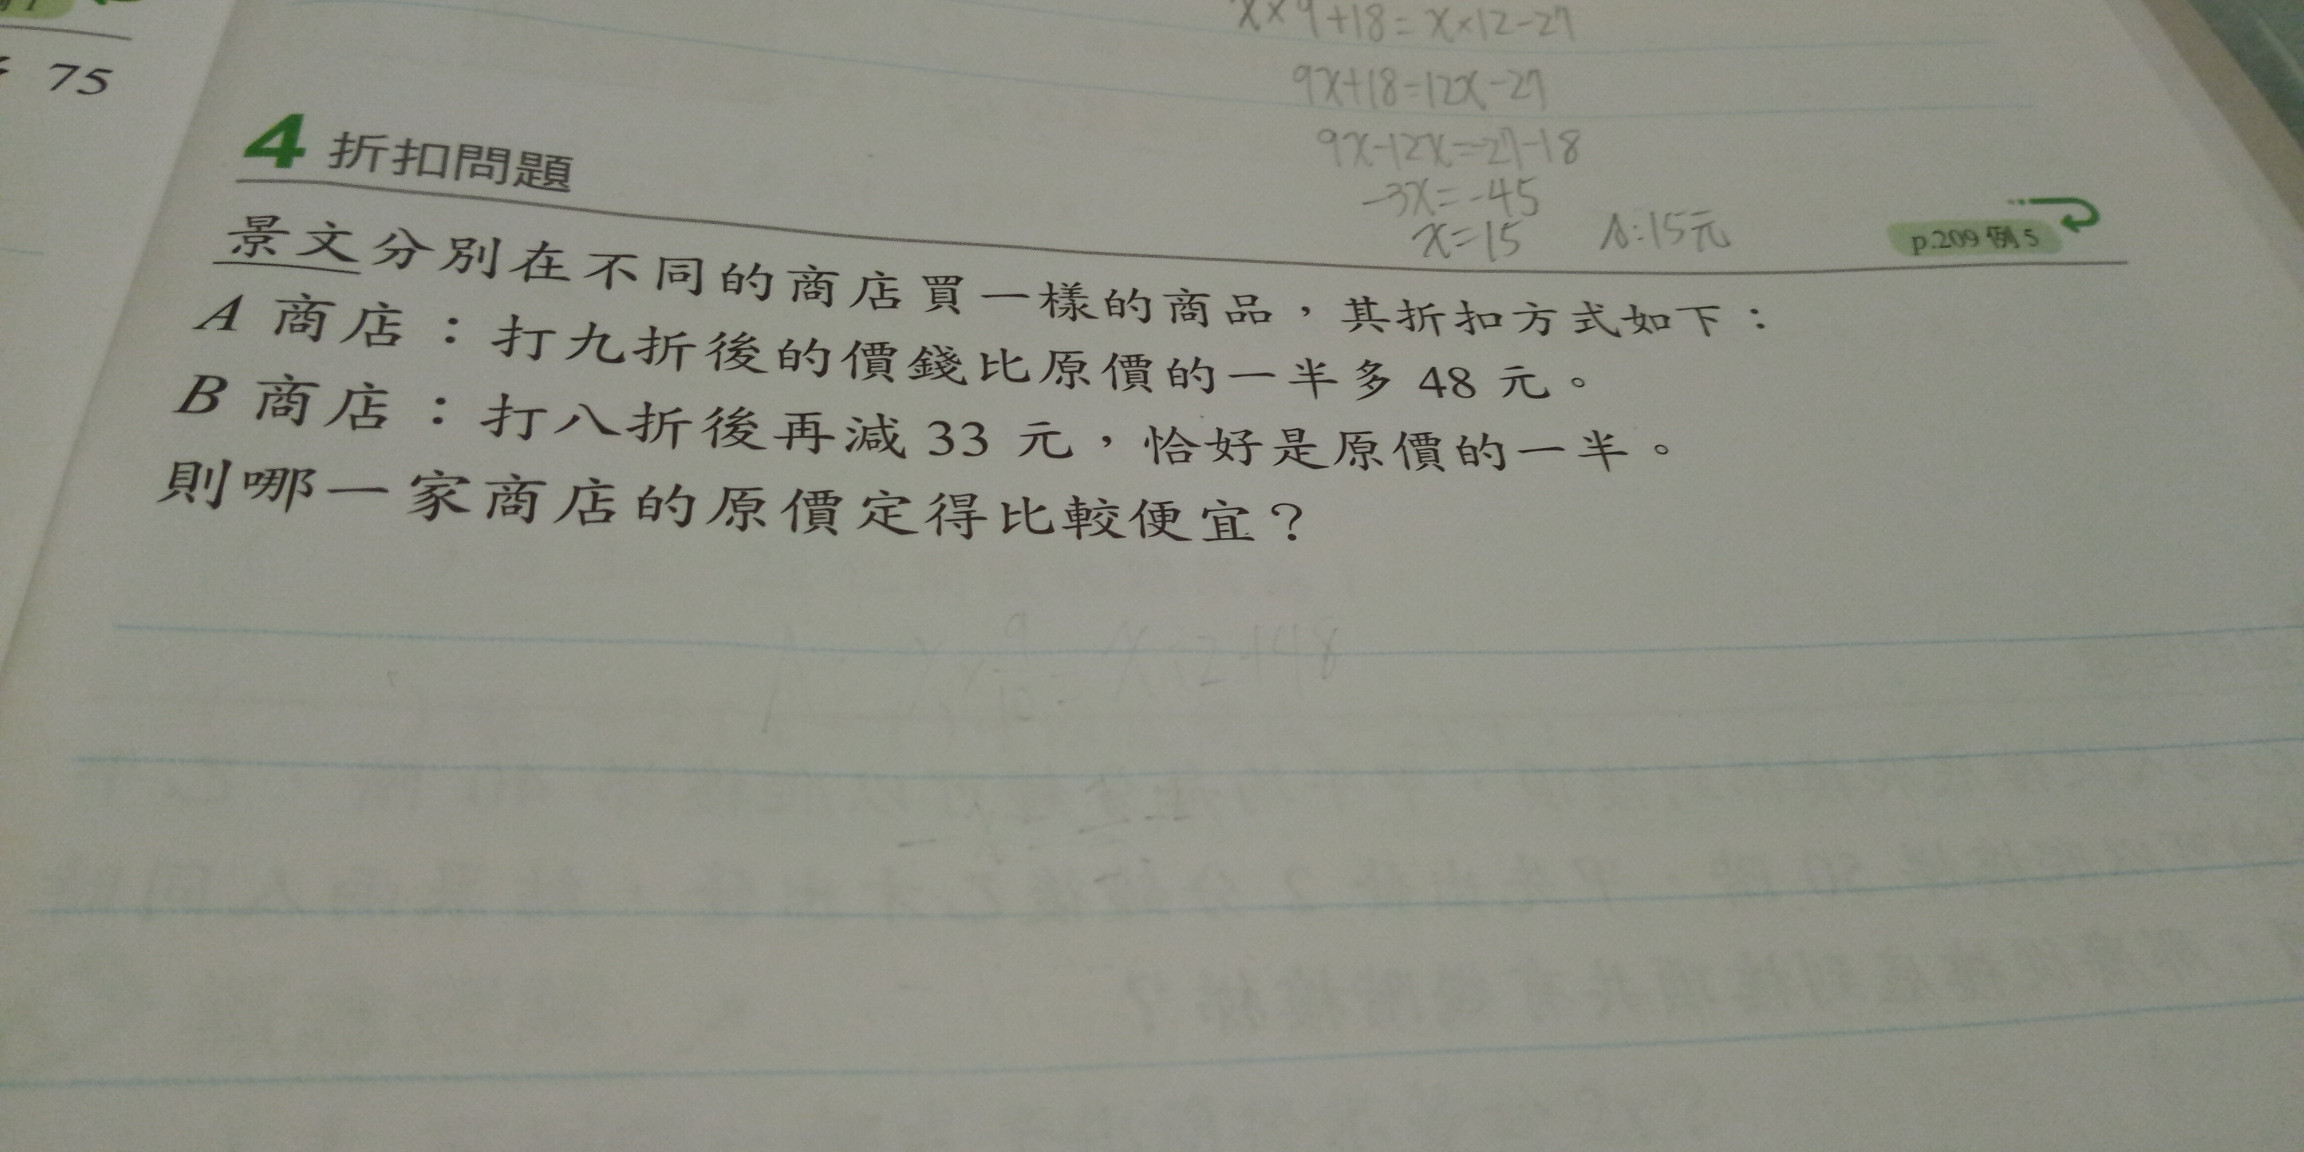 75
x×9+18=x×12-27
9x+18=12x-27
9x-12x=27-18
-3x=-45
x=15 A:15元
4 折扣問題
p.209 例5
景文分別在不同的商店買一樣的商品，其折扣方式如下：
A 商店：打九折後的價錢比原價的一半多 48 元。
B 商店：打八折後再減 33 元，恰好是原價的一半。
則哪一家商店的原價定得比較便宜？